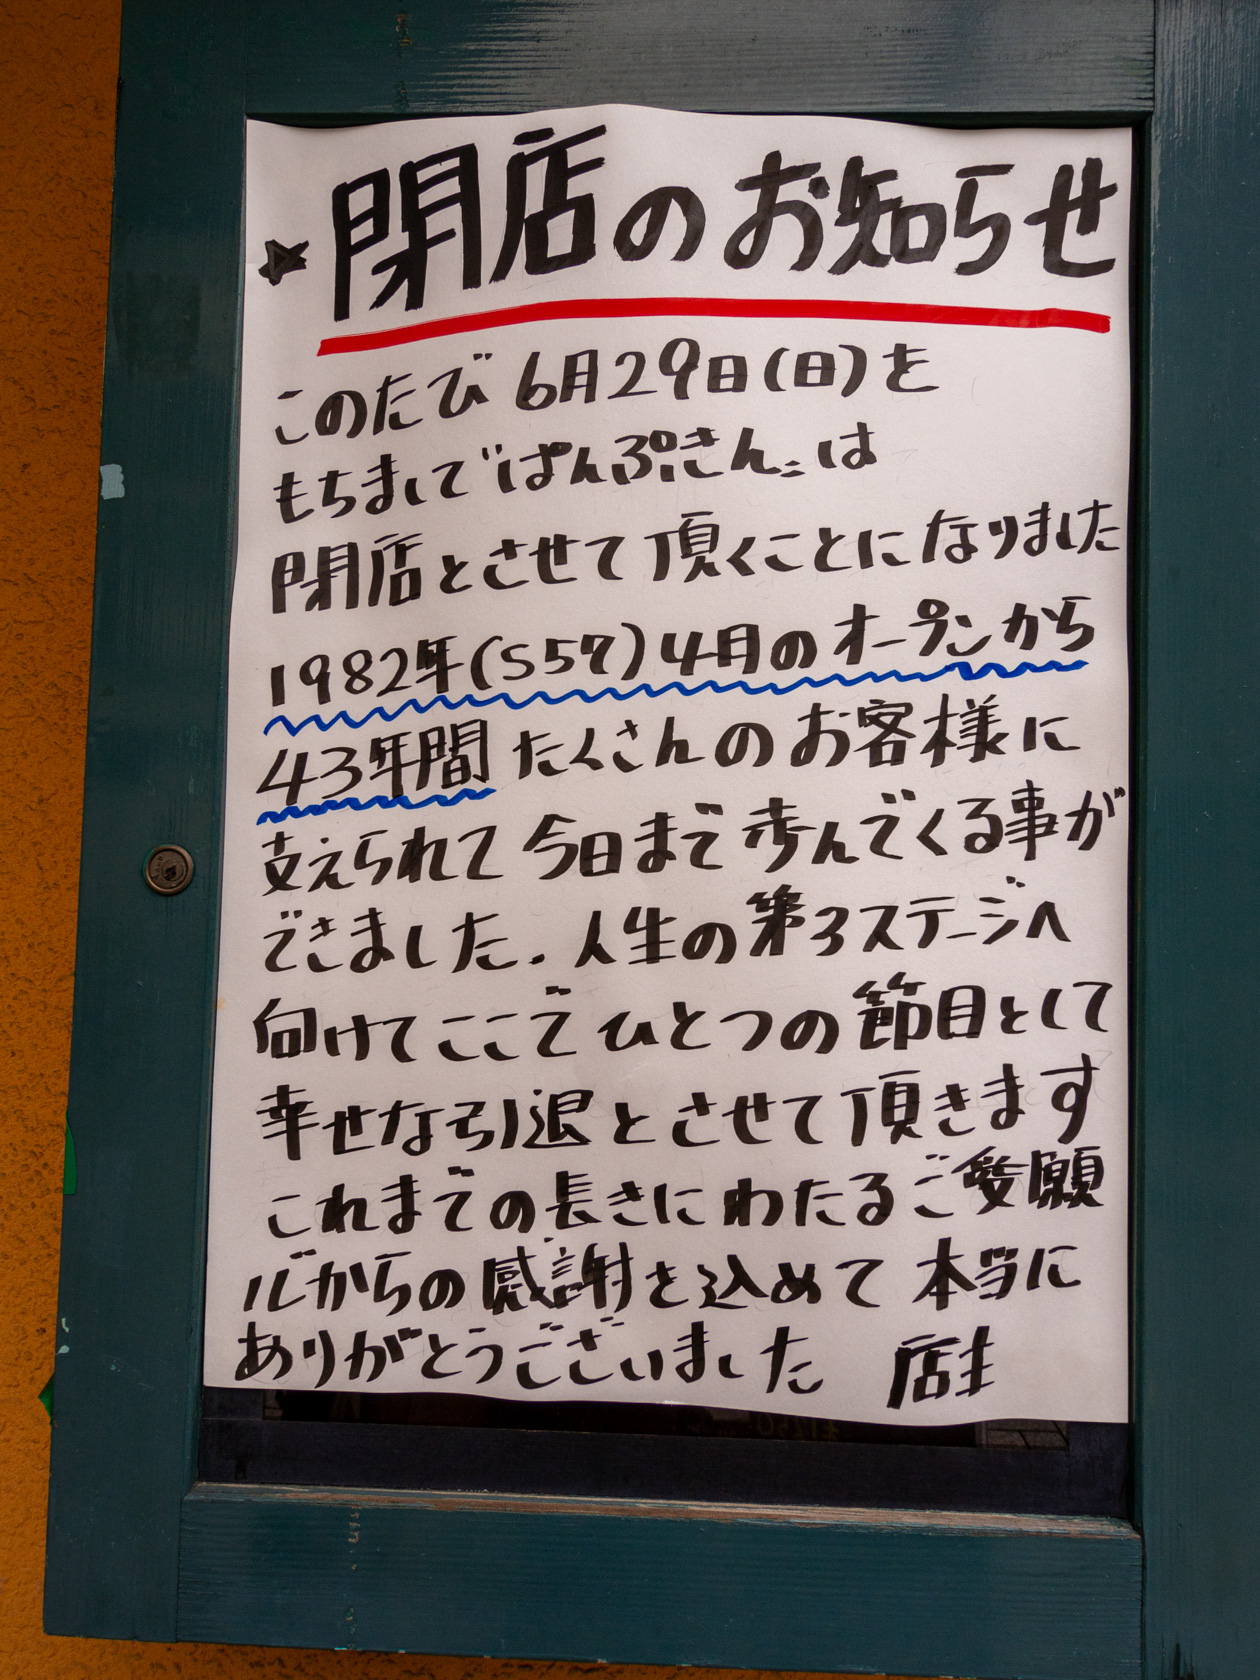 ★閉店のお知らせ
このたび6月29日(日)を
もちまして"ぱんぷきん"は
閉店とさせて頂くことになりました
1982年(S57)4月のオープンから
43年間たくさんのお客様に
支えられて今日まで歩んでくる事が
できました.人生の第3ステージへ
向けてここでひとつの節目として
幸せな引退とさせて頂きます
これまでの長きにわたるご愛顧
心からの感謝を込めて本当に
ありがとうございました 店主